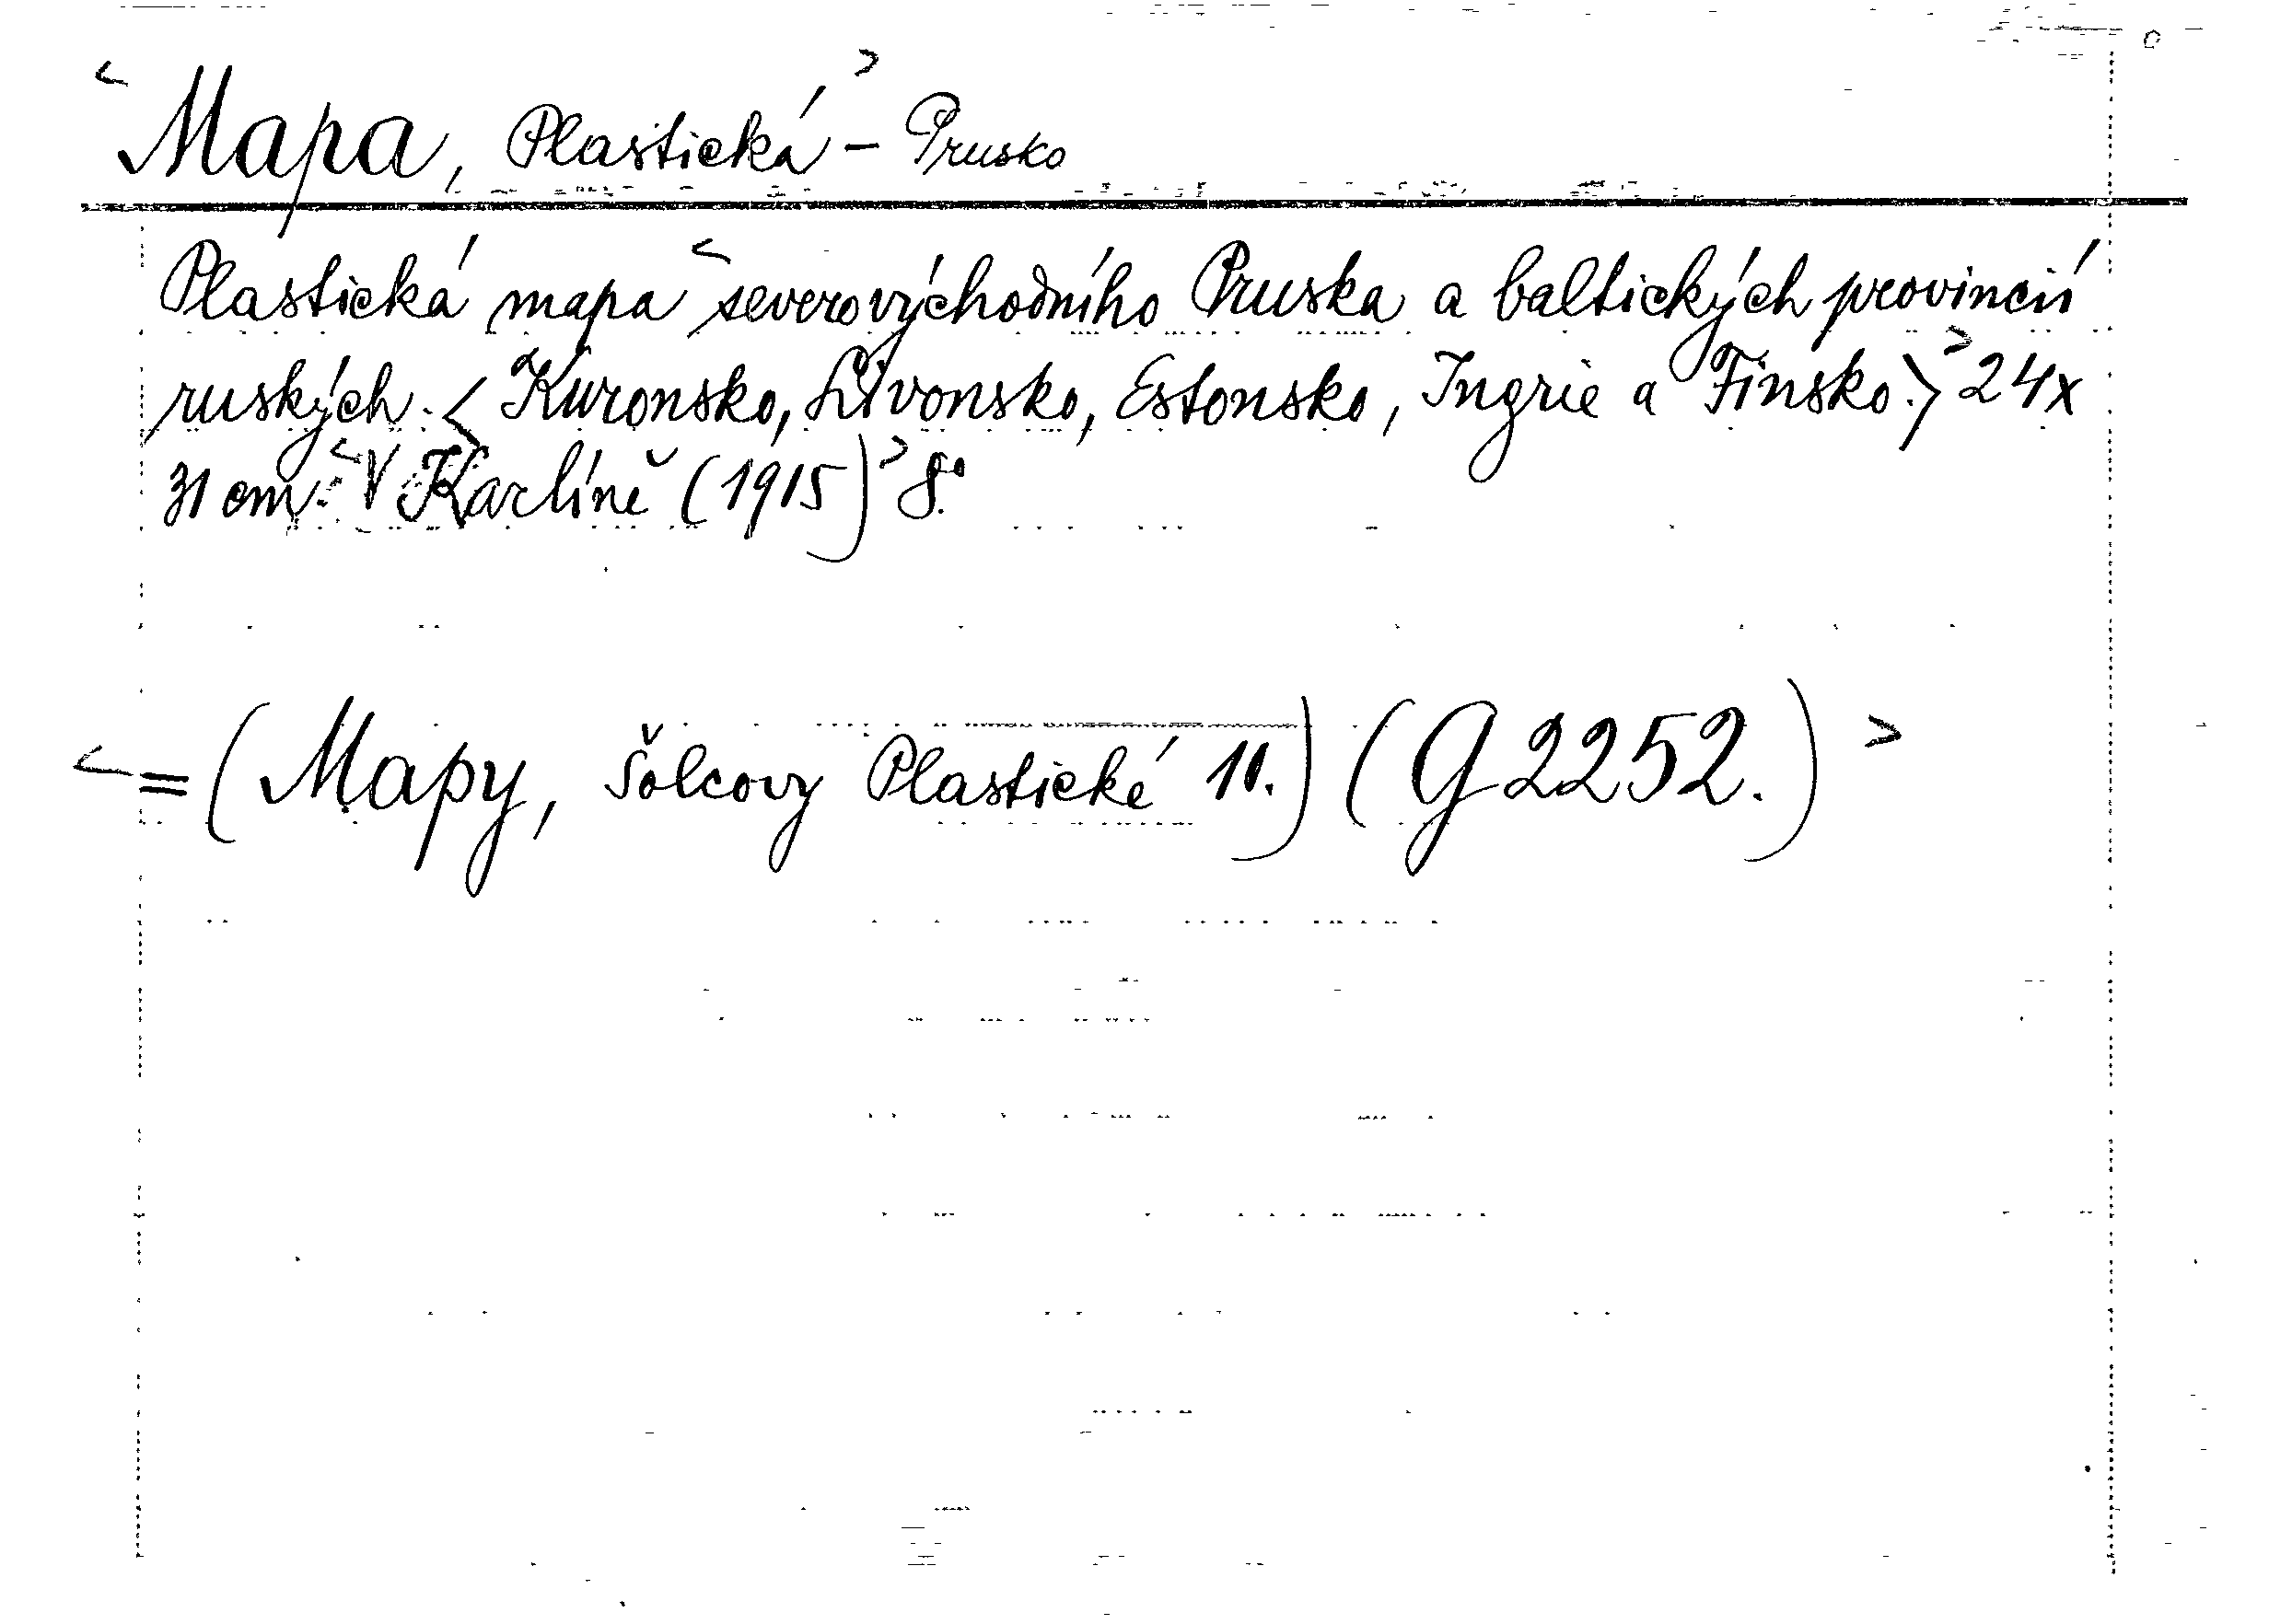 <Mapa, Plastická> – Prusko
Plastická mapa <severovýchodního Pruska a baltických provincií
ruských. <Kuronsko, Livonsko, Estonsko, Ingrie a Finsko.>> 24x
31 cm. <V Karlíně (1915)> 8°.
<= (Mapy, Šolcovy Plastické 10.) (G 2252.)>